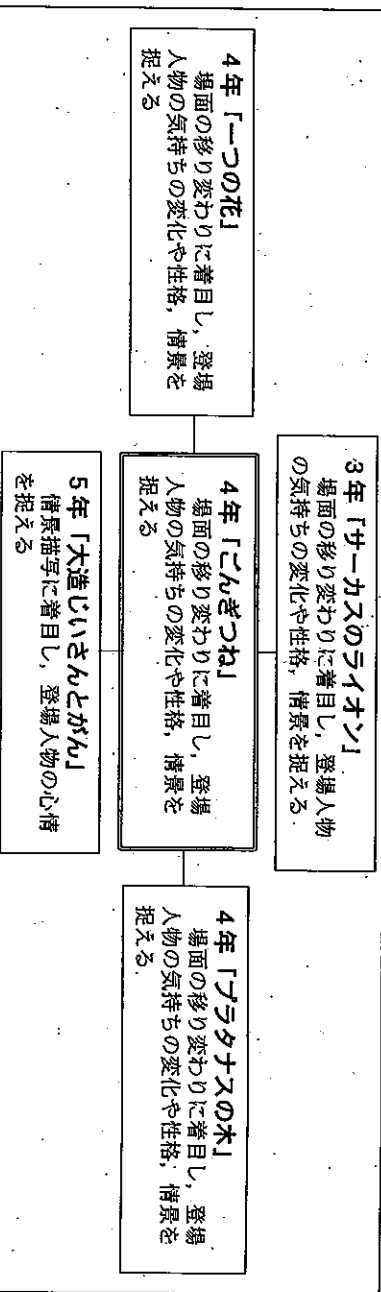 3年「サーカスのライオン」
場面の移り変わりに着目し，登場人物
の気持ちの変化や性格，情景を捉える
4年「一つの花」
場面の移り変わりに着目し，登場
人物の気持ちの変化や性格，情景を
捉える
4年「ごんぎつね」
場面の移り変わりに着目し，登場
人物の気持ちの変化や性格，情景を
捉える
4年「プラタナスの木」
場面の移り変わりに着目し，登場
人物の気持ちの変化や性格，情景を
捉える
5年「大造じいさんとがん」
情景描写に着目し，登場人物の心情
を捉える